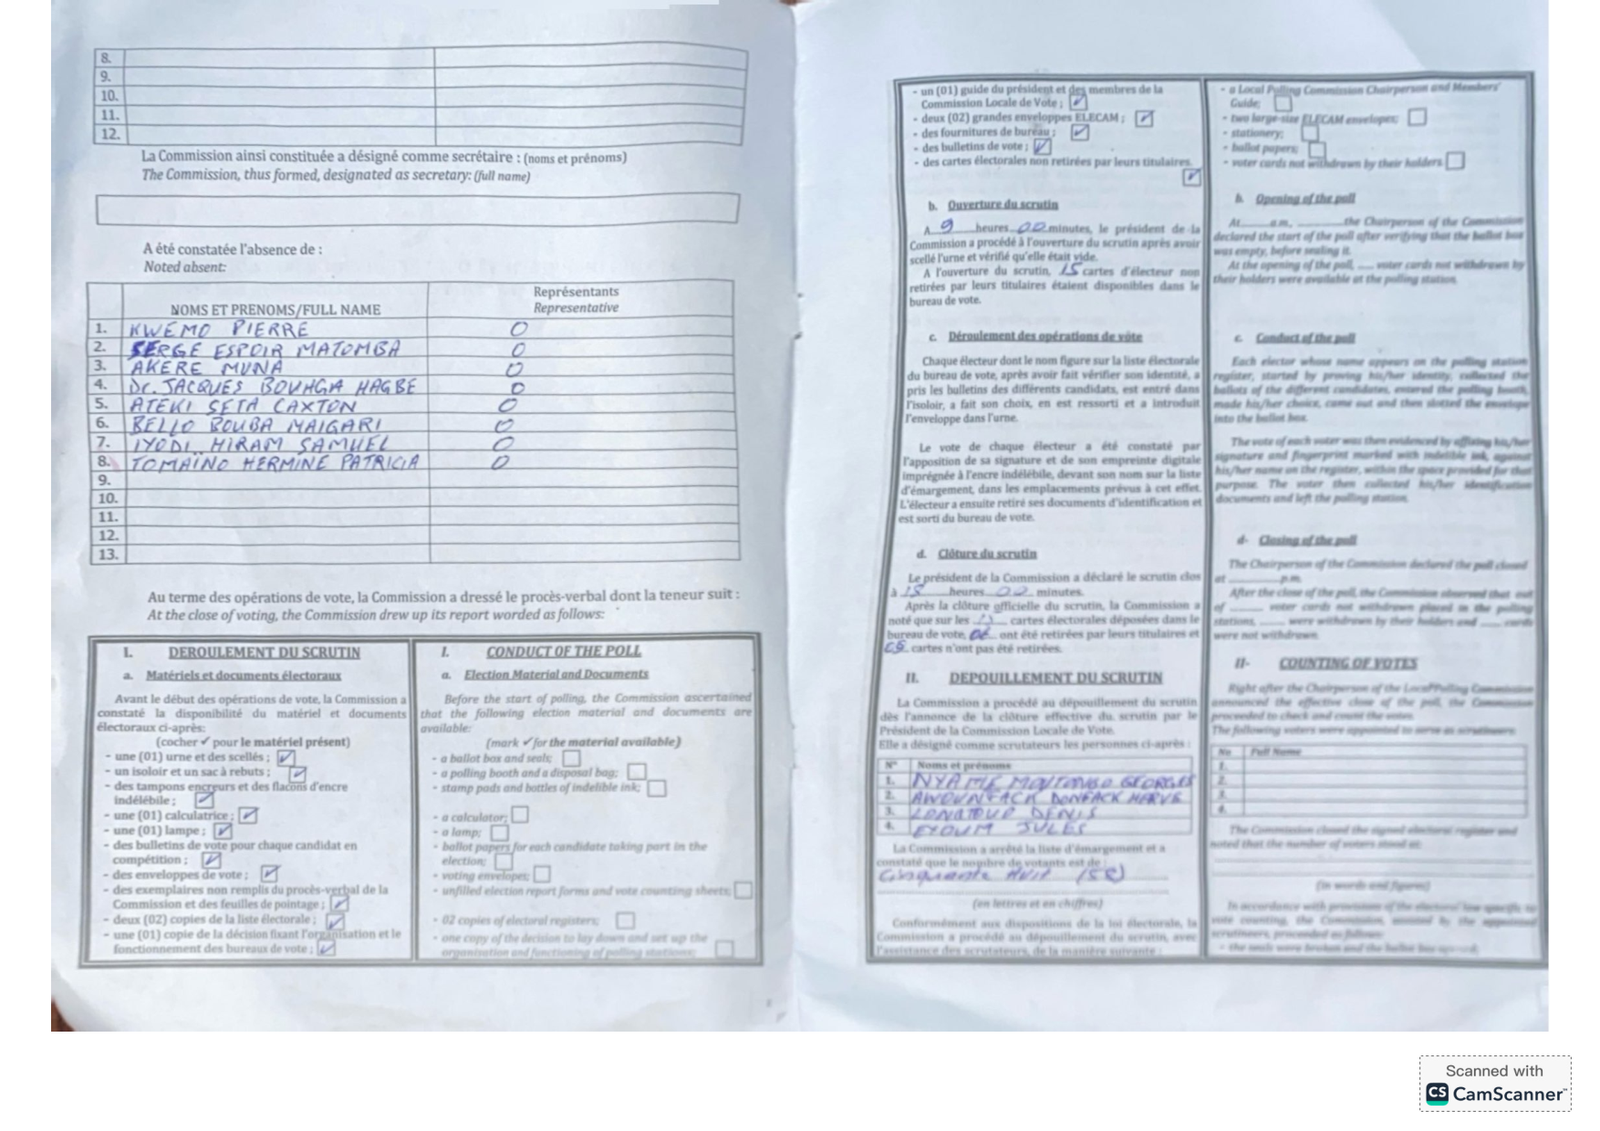 8.
9.
10.
11.
12.
La Commission ainsi constituée a désigné comme secrétaire : (noms et prénoms)
The Commission, thus formed, designated as secretary: (full name)
A été constatée l'absence de :
Noted absent:
NOMS ET PRENOMS/FULL NAME
Représentants
Representative
1. KWEMO PIERRE O
2. SERGE ESPOIR MATOMBA O
3. AKERE MUNA O
4. Dr. JACQUES BOUHGA HAGBE O
5. ATEKI SETA CAXTON O
6. BELLO BOUBA MAIGARI O
7. IYODI HIRAM SAMUEL O
8. TOMAÏNO HERMINE PATRICIA O
9.
10.
11.
12.
13.
Au terme des opérations de vote, la Commission a dressé le procès-verbal dont la teneur suit :
At the close of voting, the Commission drew up its report worded as follows:
I. DEROULEMENT DU SCRUTIN
a. Matériels et documents électoraux
Avant le début des opérations de vote, la Commission a
constaté la disponibilité du matériel et documents
électoraux ci-après:
(cocher ✓ pour le matériel présent)
- une (01) urne et des scellés ; ✓
- un isoloir et un sac à rebuts ; ✓
- des tampons encreurs et des flacons d'encre
indélébile ; ✓
- une (01) calculatrice ; ✓
- une (01) lampe ; ✓
- des bulletins de vote pour chaque candidat en
compétition ; ✓
- des enveloppes de vote ; ✓
- des exemplaires non remplis du procès-verbal de la
Commission et des feuilles de pointage ; ✓
- deux (02) copies de la liste électorale ; ✓
- une (01) copie de la décision fixant l'organisation et le
fonctionnement des bureaux de vote ; ✓
I. CONDUCT OF THE POLL
a. Election Material and Documents
Before the start of polling, the Commission ascertained
that the following election material and documents are
available:
(mark ✓ for the material available)
- a ballot box and seals;
- a polling booth and a disposal bag;
- stamp pads and bottles of indelible ink;
- a calculator;
- a lamp;
- ballot papers for each candidate taking part in the
election;
- voting envelopes;
- unfilled election report forms and vote counting sheets;
- 02 copies of electoral registers;
- one copy of the decision to lay down and set up the
organisation and functioning of polling stations;
- un (01) guide du président et des membres de la
Commission Locale de Vote ; ✓
- deux (02) grandes enveloppes ELECAM ; ✓
- des fournitures de bureau ; ✓
- des bulletins de vote ; ✓
- des cartes électorales non retirées par leurs titulaires.
✓
b. Ouverture du scrutin
A 9 heures 00 minutes, le président de la
Commission a procédé à l'ouverture du scrutin après avoir
scellé l'urne et vérifié qu'elle était vide.
A l'ouverture du scrutin, 15 cartes d'électeur non
retirées par leurs titulaires étaient disponibles dans le
bureau de vote.
c. Déroulement des opérations de vote
Chaque électeur dont le nom figure sur la liste électorale
du bureau de vote, après avoir fait vérifier son identité, a
pris les bulletins des différents candidats, est entré dans
l'isoloir, a fait son choix, en est ressorti et a introduit
l'enveloppe dans l'urne.
Le vote de chaque électeur a été constaté par
l'apposition de sa signature et de son empreinte digitale
imprégnée à l'encre indélébile, devant son nom sur la liste
d'émargement, dans les emplacements prévus à cet effet.
L'électeur a ensuite retiré ses documents d'identification et
est sorti du bureau de vote.
d. Clôture du scrutin
Le président de la Commission a déclaré le scrutin clos
à heures 00 minutes.
Après la clôture officielle du scrutin, la Commission a
noté que sur les cartes électorales déposées dans le
bureau de vote, 06 ont été retirées par leurs titulaires et
09 cartes n'ont pas été retirées.
II. DEPOUILLEMENT DU SCRUTIN
La Commission a procédé au dépouillement du scrutin
dès l'annonce de la clôture effective du scrutin par le
Président de la Commission Locale de Vote.
Elle a désigné comme scrutateurs les personnes ci-après :
N° Noms et prénoms
1. NYAME GEORGES
2. DONFACK HERVE
3. DENIS
4. EYOUM JULES
La Commission a arrêté la liste d'émargement et a
constaté que le nombre de votants est de :
Cinquante huit (58)
(en lettres et en chiffres)
Conformément aux dispositions de la loi électorale, la
Commission a procédé au dépouillement du scrutin, avec
l'assistance des scrutateurs, de la manière suivante :
- a Local Polling Commission Chairperson and Members'
Guide;
- two large-size ELECAM envelopes;
- stationery;
- ballot papers;
- voter cards not withdrawn by their holders.
b. Opening of the poll
At a.m, the Chairperson of the Commission
declared the start of the poll after verifying that the ballot box
was empty, before sealing it.
At the opening of the poll, voter cards not withdrawn by
their holders were available at the polling station.
c. Conduct of the poll
Each elector whose name appears on the polling station
register, started by proving his/her identity, collected the
ballots of the different candidates, entered the polling booth,
made his/her choice, came out and then slotted the envelope
into the ballot box.
The vote of each voter was then evidenced by affixing his/her
signature and fingerprint marked with indelible ink, against
his/her name on the register, within the space provided for that
purpose. The voter then collected his/her identification
documents and left the polling station.
d- Closing of the poll
The Chairperson of the Commission declared the poll closed
at p.m.
After the close of the poll, the Commission observed that out
of voter cards not withdrawn placed in the polling
stations, were withdrawn by their holders and cards
were not withdrawn.
II- COUNTING OF VOTES
Right after the Chairperson of the Local Polling Commission
announced the effective close of the poll, the Commission
proceeded to check and count the votes.
The following voters were appointed to serve as scrutineers:
No Full Name
1.
2.
3.
4.
The Commission closed the signed electoral register and
noted that the number of voters stood at:
(in words and figures)
In accordance with provisions of the electoral law specific to
vote counting, the Commission, assisted by the appointed
scrutineers, proceeded as follows:
- the seals were broken and the ballot box opened;
Scanned with
CS CamScanner